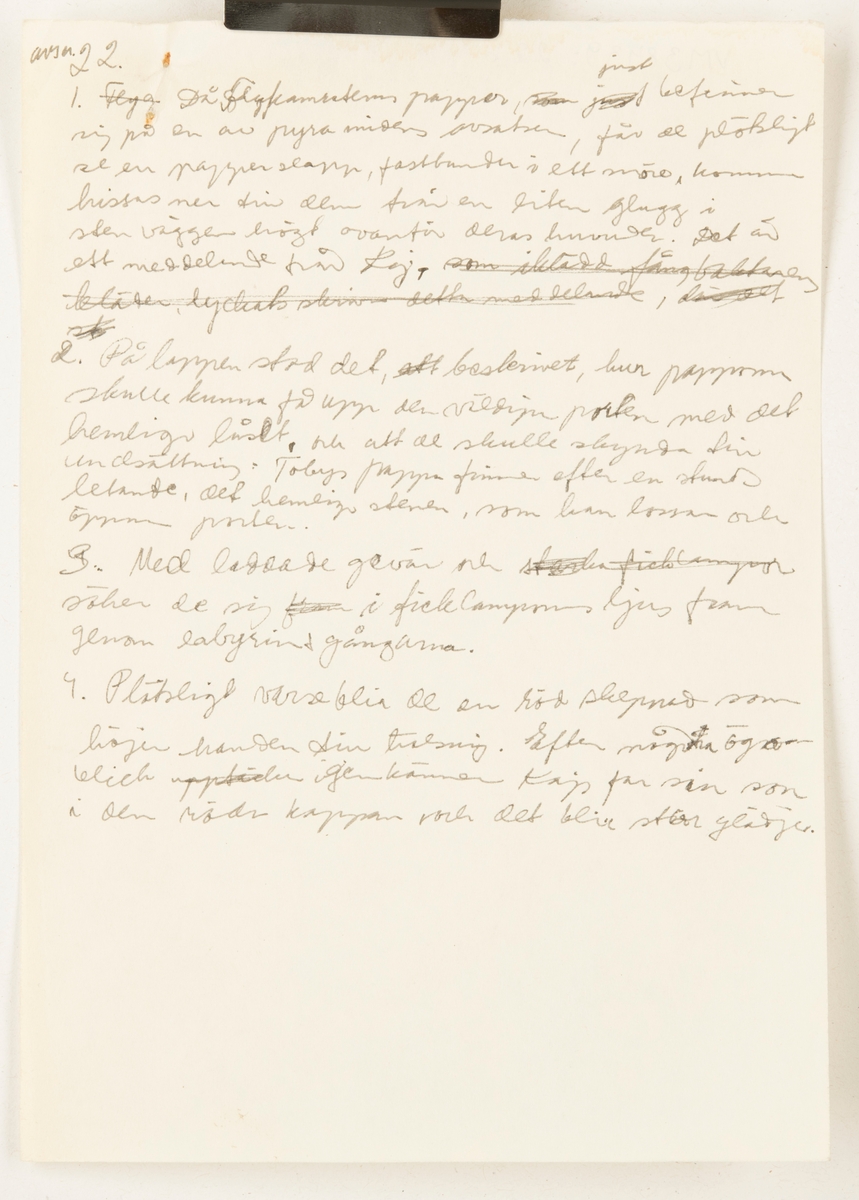 avsn. 22.
just
1. Flyg Då Flygkamraterns pappor, som just befinner
sig på en av pyramidens avsatser, får de plötsligt
se en papperslapp, fastbunden i ett snöre, komma
hissas ner till dem från en liten glugg i
stenväggen högt ovanför deras huvuden. Det är
ett meddelande från Kaj, som iklädd fångvaktarens
kläder, lyckats skriva detta meddelande, där det
2. På lappen stod det, att beskrivet, hur papporna
skulle kunna få upp den väldiga porten med det
hemliga låset, och att de skulle skynda till
undsättning. Tobys pappa finner efter en stunds
letande, det hemliga stenen, som han lossar och
öppnar porten.
3. Med laddade gevär och starka ficklampor
söker de sig fram i ficklampornas ljus fram
genom labyrintgångarna.
4. Plötsligt varseblir de en röd skepnad som
höjer handen till hälsning. Efter några ögon
blick upptäcker igenkänner Kajs far sin son
i den röda kappan och det blir stor glädje.